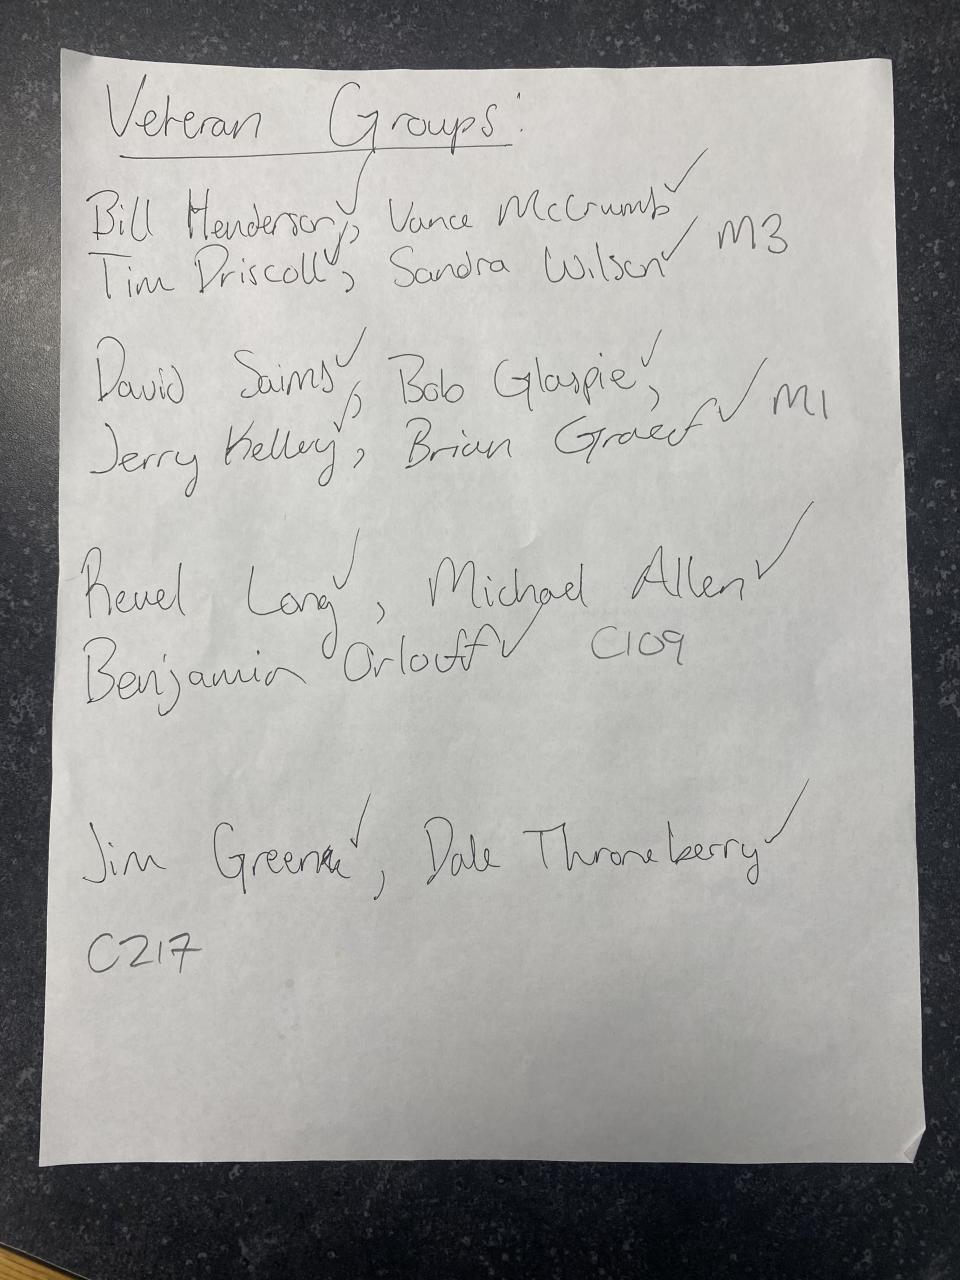 Veteran Groups:
Bill Henderson ✓, Vance McCrumb ✓
Tim Driscoll ✓, Sandra Wilson ✓ M3
David Saims ✓, Bob Glaspie ✓,
Jerry Kelley ✓, Brian Graef ✓ M1
Revel Long ✓, Michael Allen ✓
Benjamin Orloff ✓ C109
Jim Greene ✓, Dale Throneberry ✓
C217